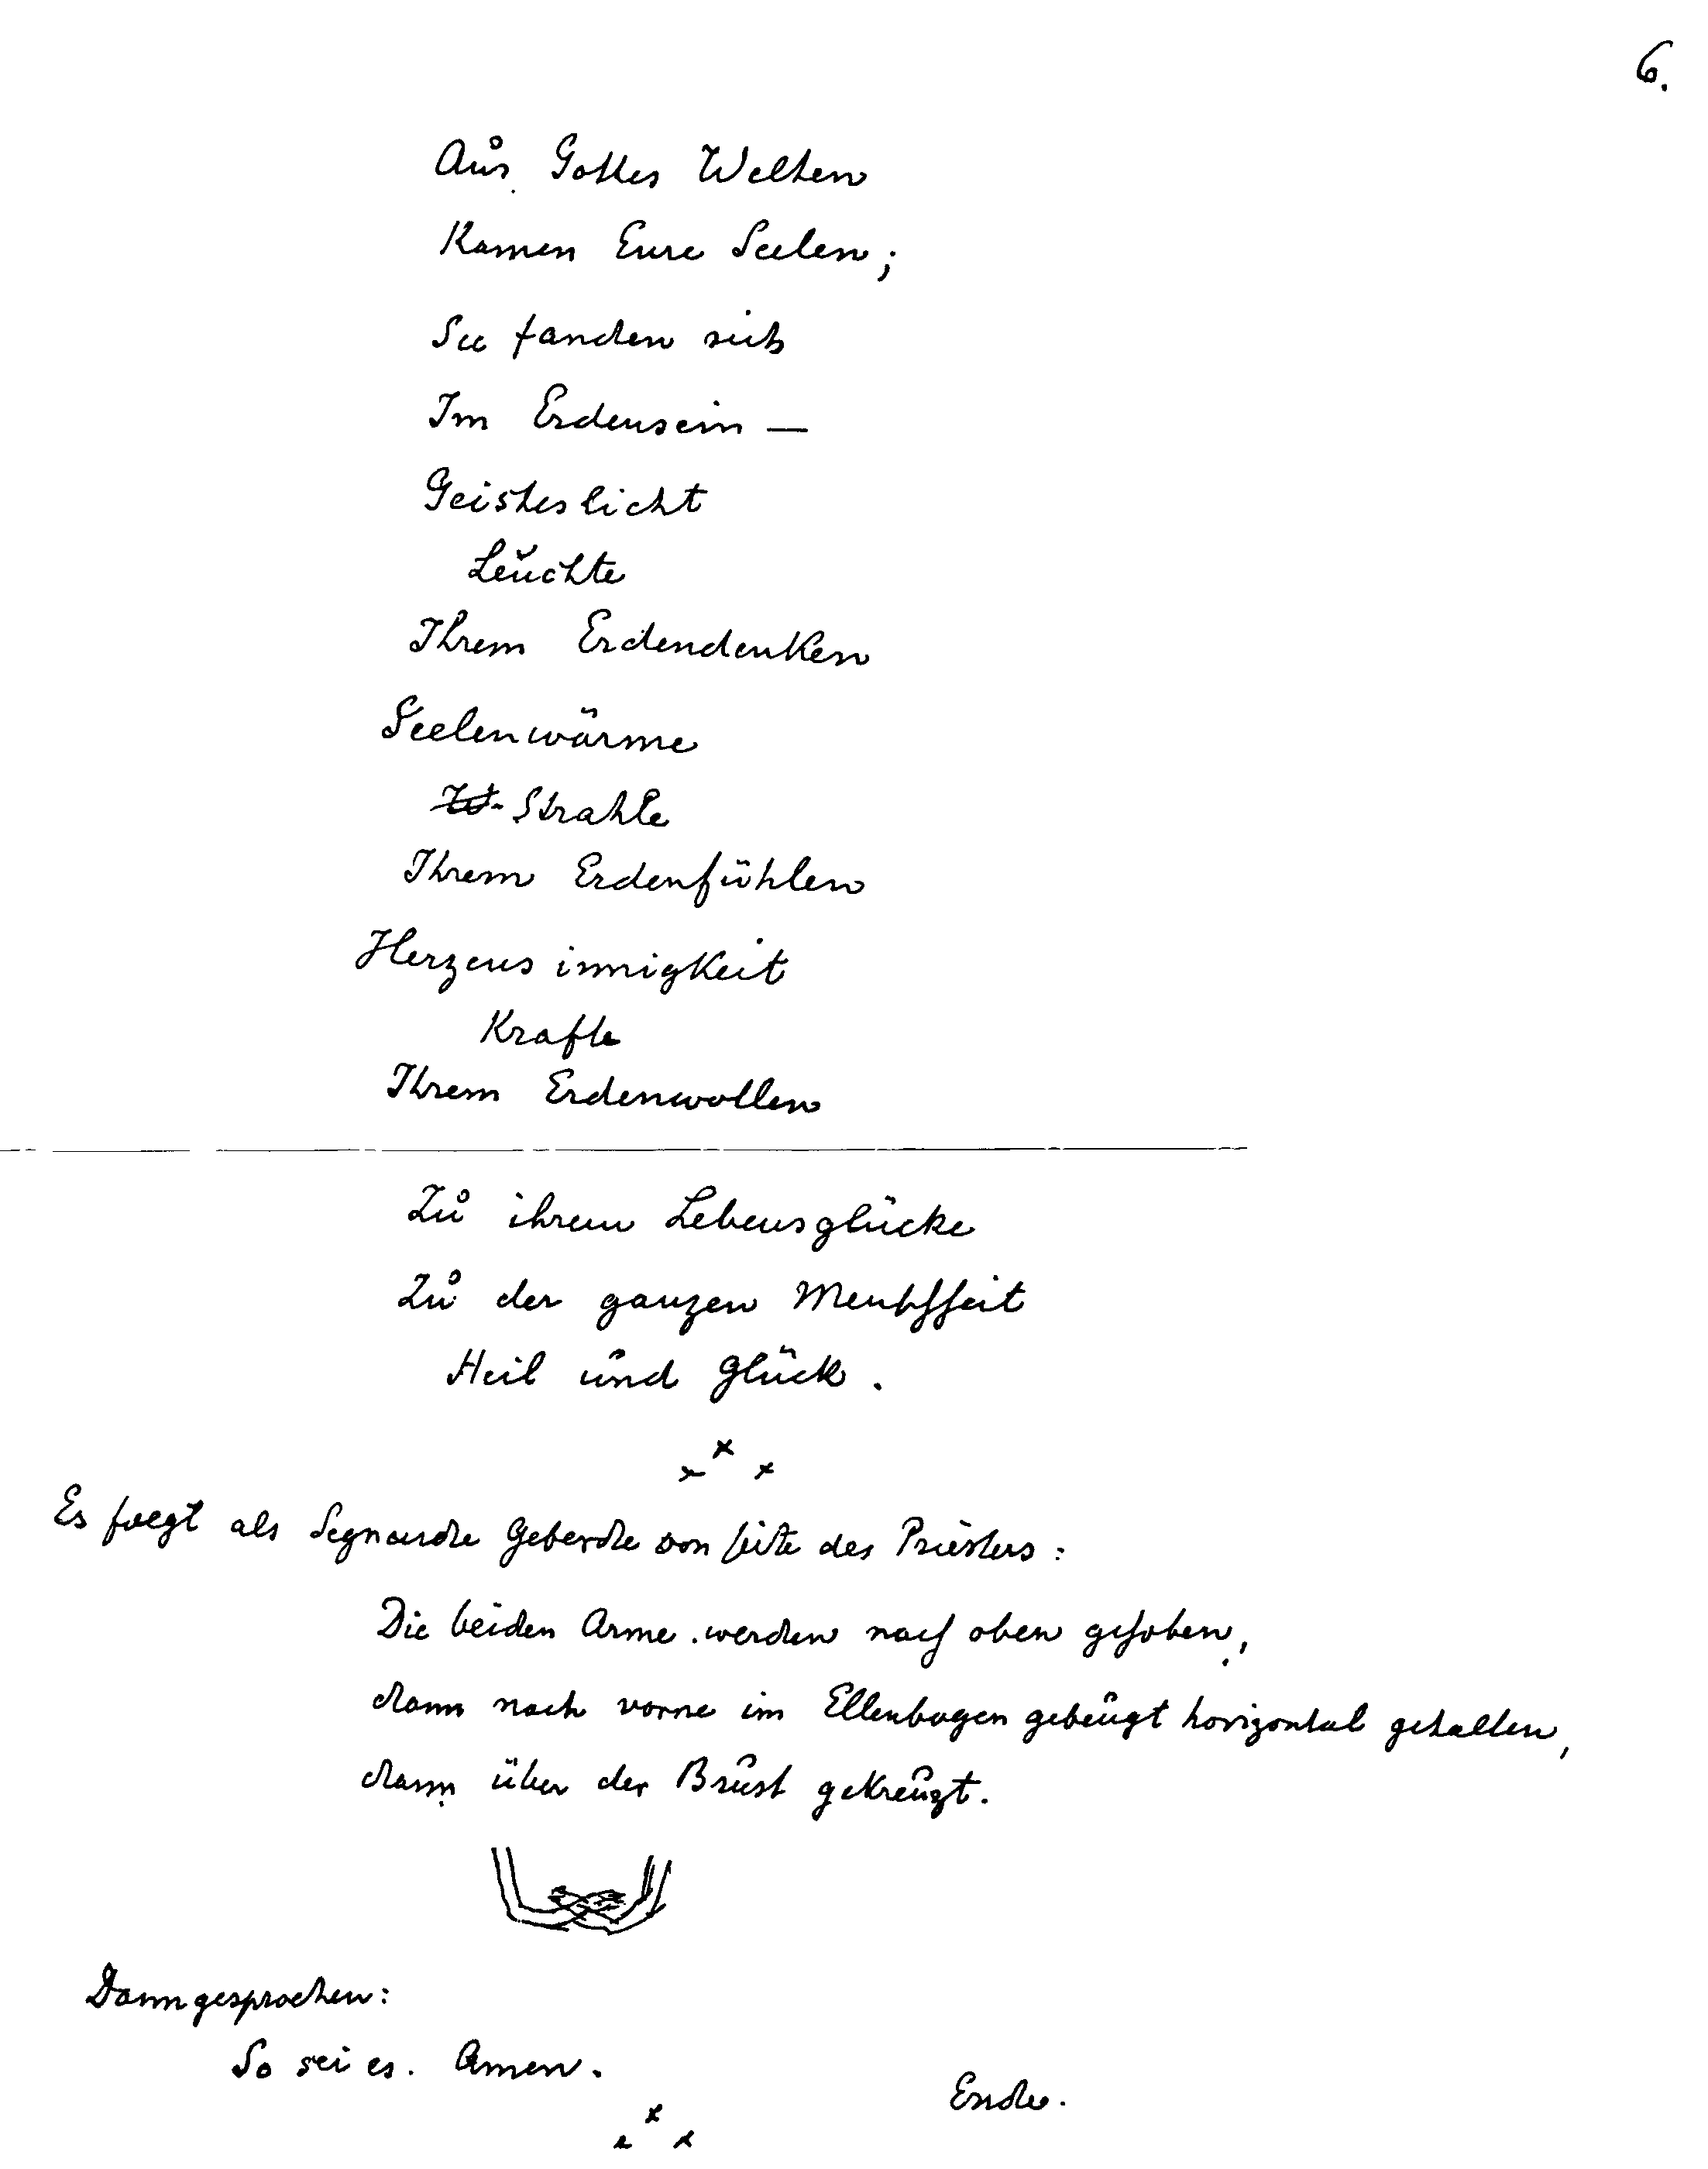 6.
Aus Gottes Welten
Kamen Eure Seelen;
Sie fanden sich
Im Erdensein —
Geisteslicht
Leuchte
Ihrem Erdendenken
Seelenwärme
W- Strahle
Ihrem Erdenfühlen
Herzensinnigkeit
Krafte
Ihrem Erdenwollen
Zu ihrem Lebensglücke
Zu der ganzen Menschheit
Heil und Glück.
x
x x
Es folgt als Segnende Geberde von seite des Priesters:
Die beiden Arme werden nach oben gehoben,
dann nach vorne im Ellenbogen gebeugt horizontal gehalten,
dann über der Brust gekreuzt.
Dann gesprochen:
So sei es. Amen.
Ende.
x
x x